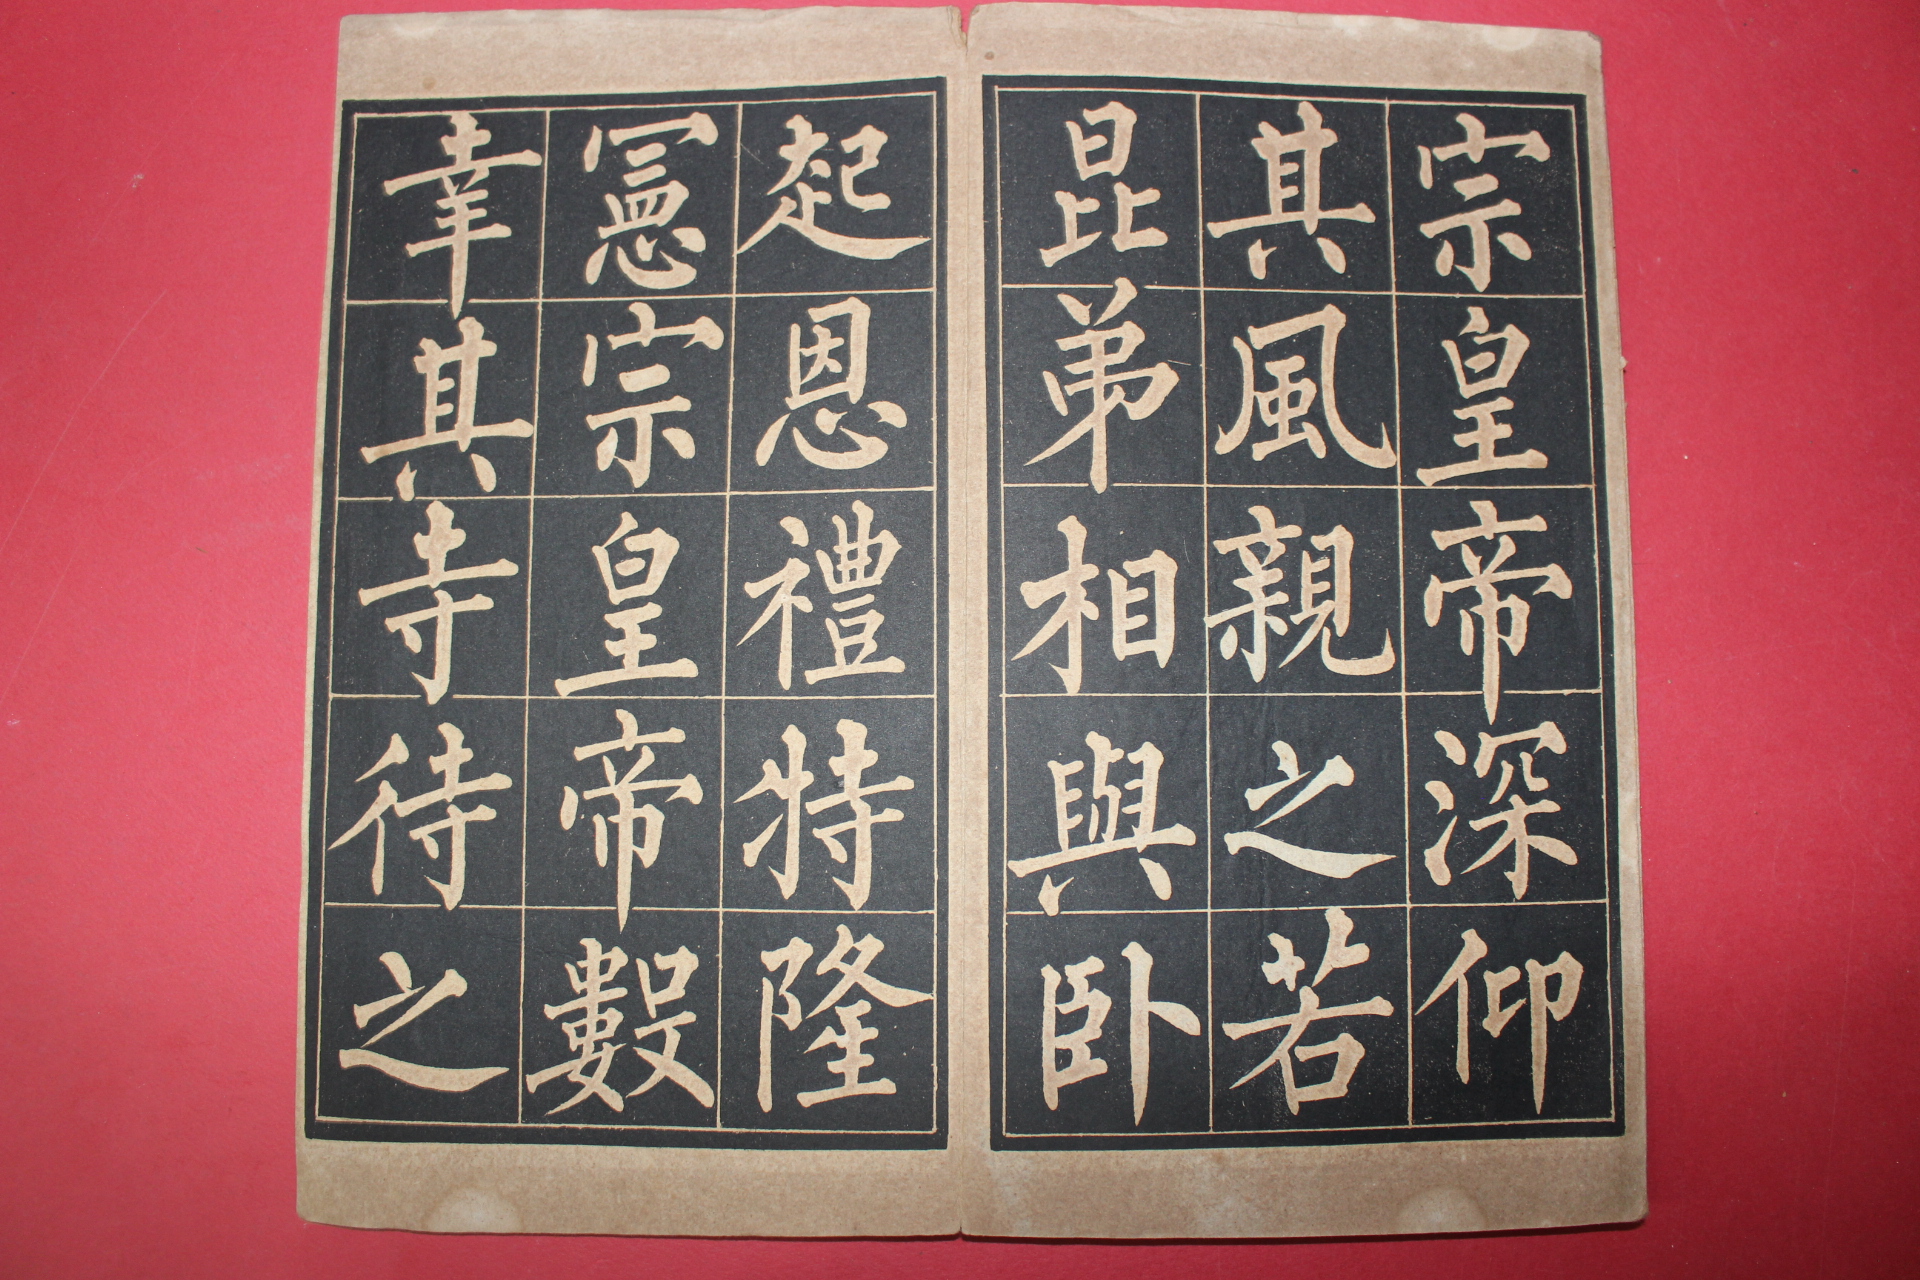 宗皇帝深仰
其風親之若
昆弟相與卧
起恩禮特隆
憲宗皇帝數
幸其寺待之